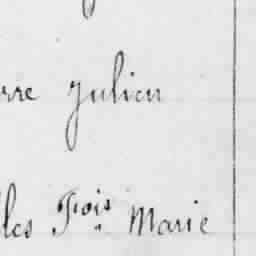 rre Julien
les Fois Marie